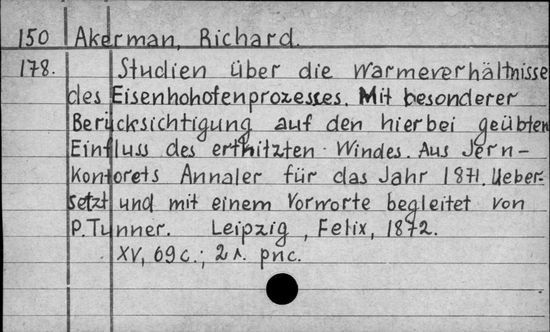 150 Akerman, Richard.
178. Studien über die Warmeverhältnisse
des Eisenhohofenprozesses. Mit besonderer
Berücksichtigung auf den hierbei geübten
Einfluss des erthitzten Windes. Aus Jern-
Kontorets Annaler für das Jahr 1871. Ueber-
setzt und mit einem Vorworte begleitet von
P. Tunner. Leipzig, Felix, 1872.
XV, 69 с.; 2 л. рис.